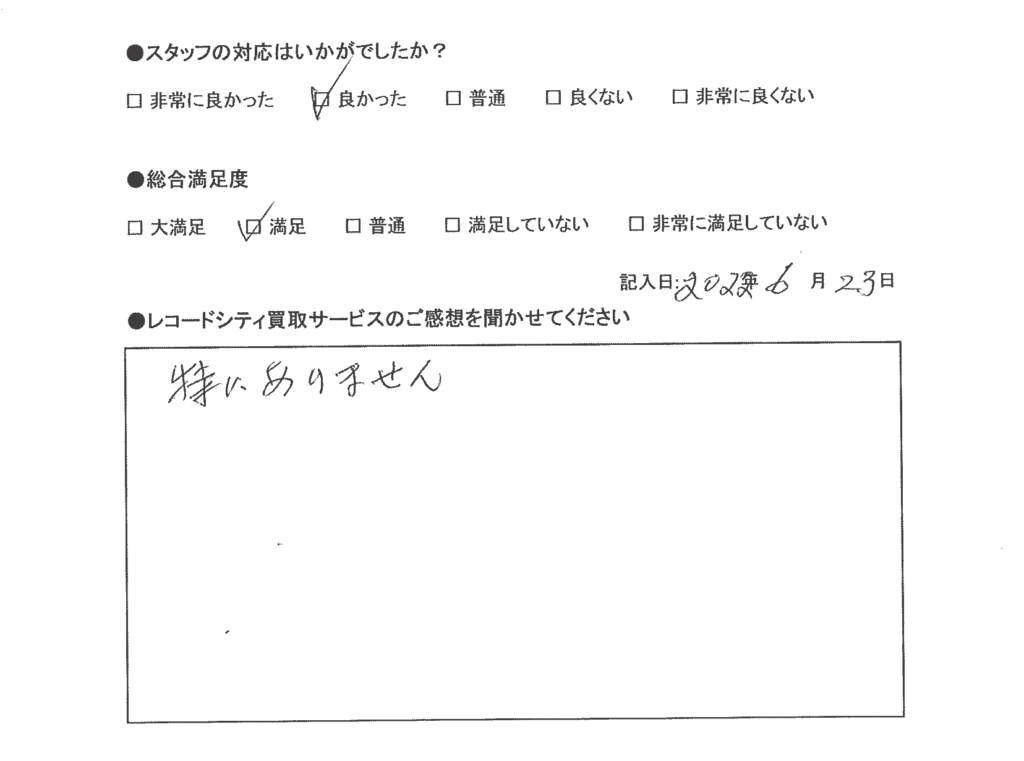 ●スタッフの対応はいかがでしたか？
□ 非常に良かった ☑ 良かった □ 普通 □ 良くない □ 非常に良くない
●総合満足度
□ 大満足 ☑ 満足 □ 普通 □ 満足していない □ 非常に満足していない
記入日:2022年 6 月 23日
●レコードシティ買取サービスのご感想を聞かせてください
特にありません